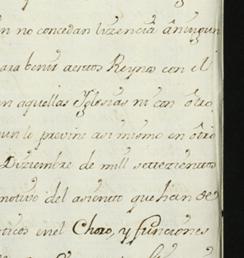 n no concedan lizencia âningun
para benir aestos Reynos con el
en aquellas Iglesias ni con otro
un le previne asi mismo en otro
Diziembre de mill settezientos
motivo del asiento que han de
eneel Choro, y funciones